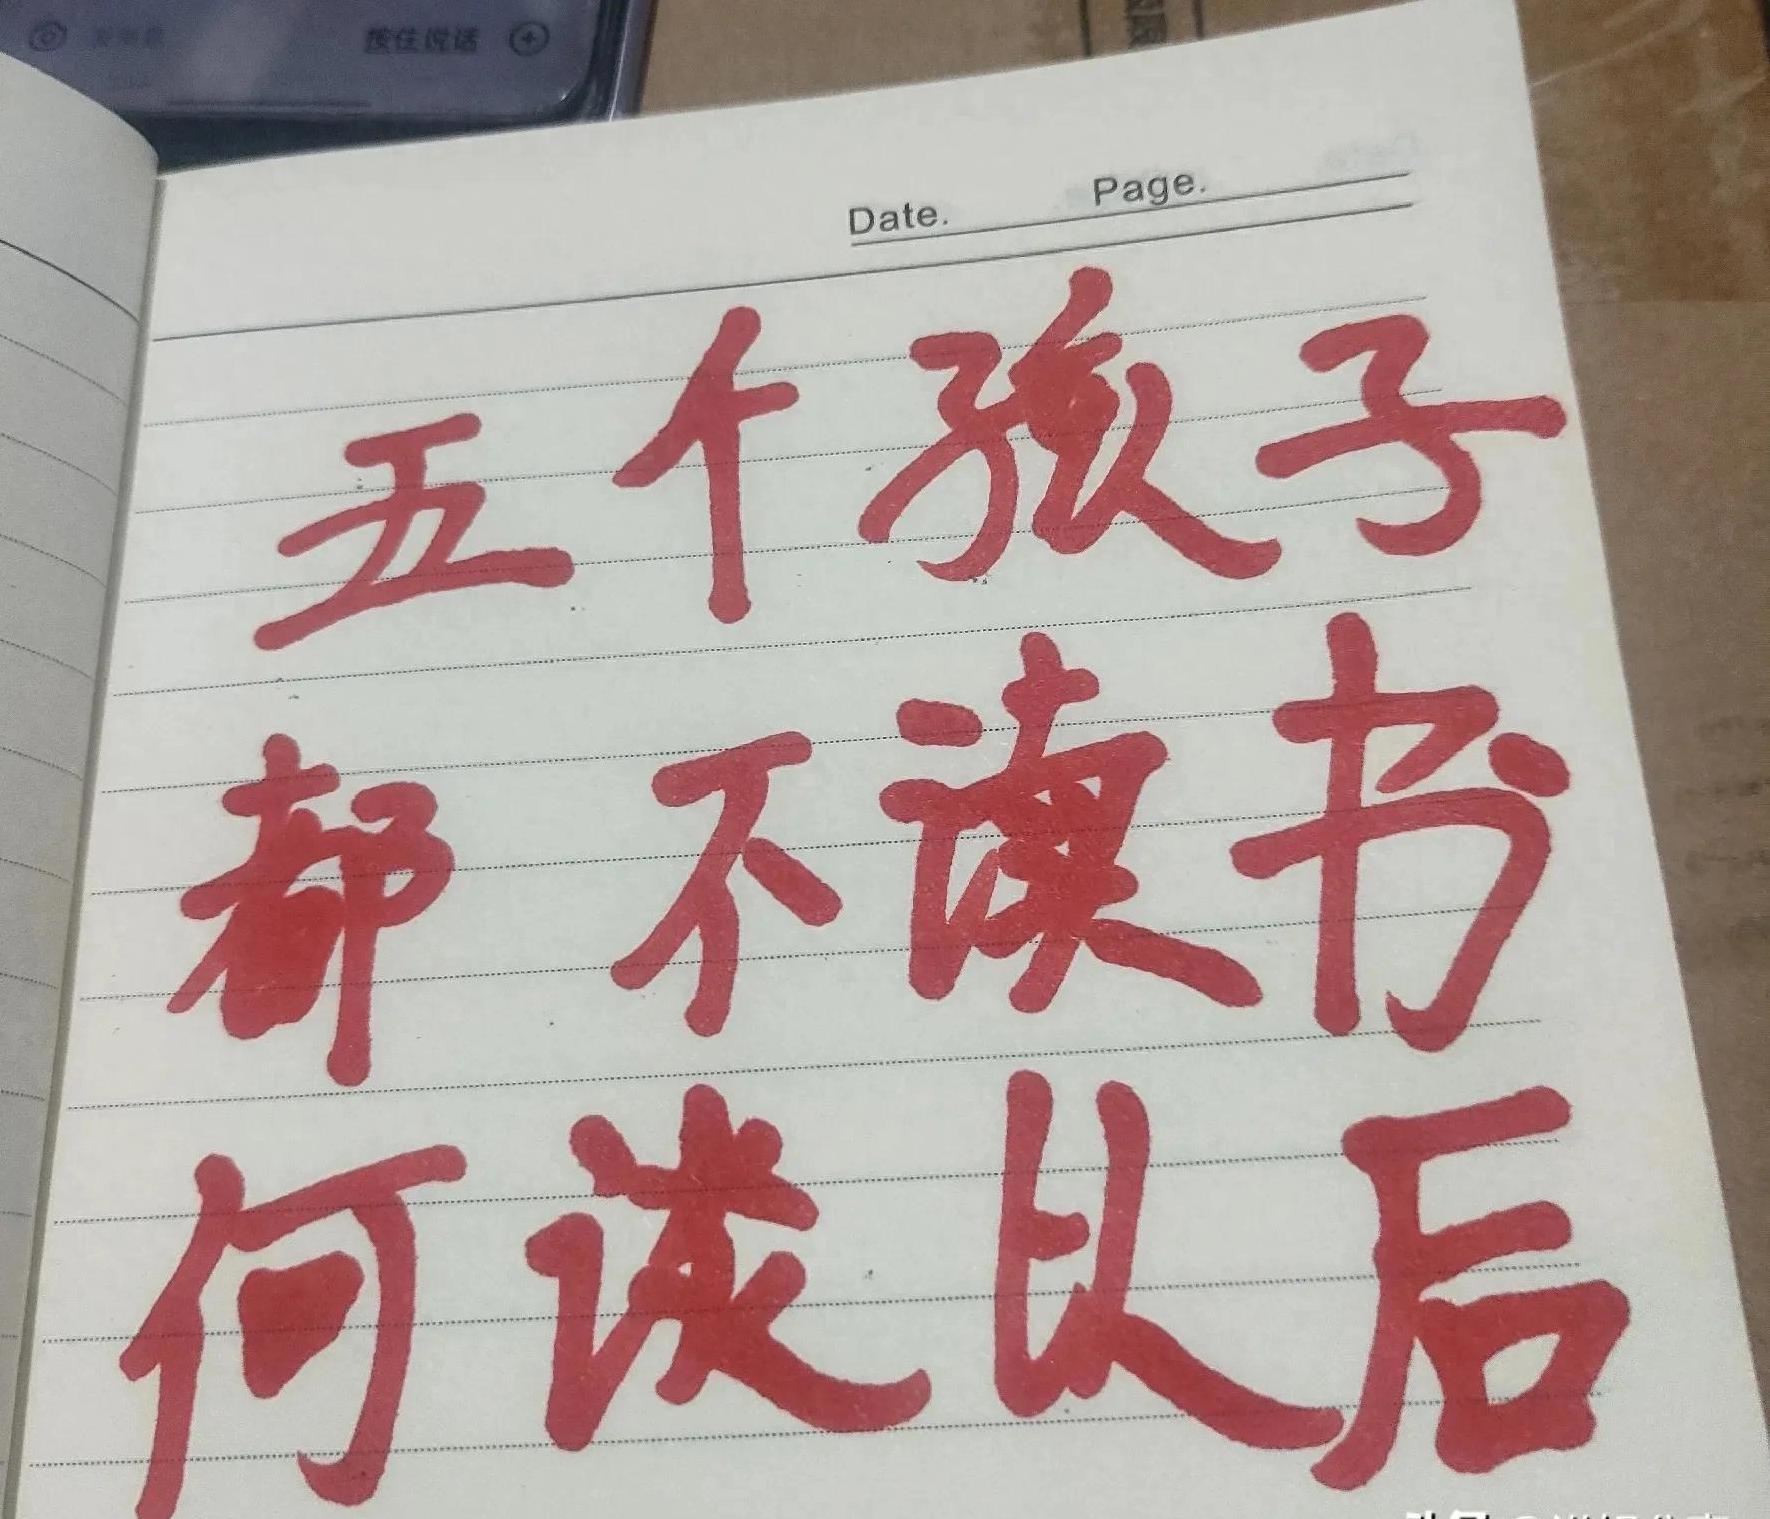 按住说话
Date.
Page.
五个孩子
都不读书
何谈以后